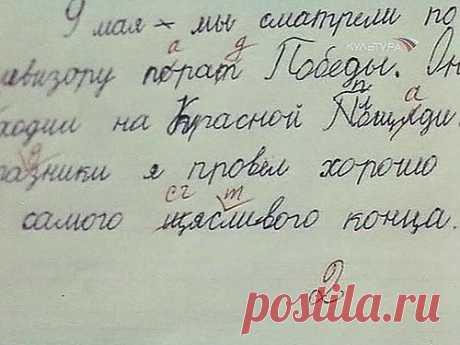 9 мая мы сматрели по
левизору порат Победы. Он
ходил на Красной Пощиди.
разники я провел хорошо
самого щясливого конца.
2
КУЛЬТУРА
postila.ru